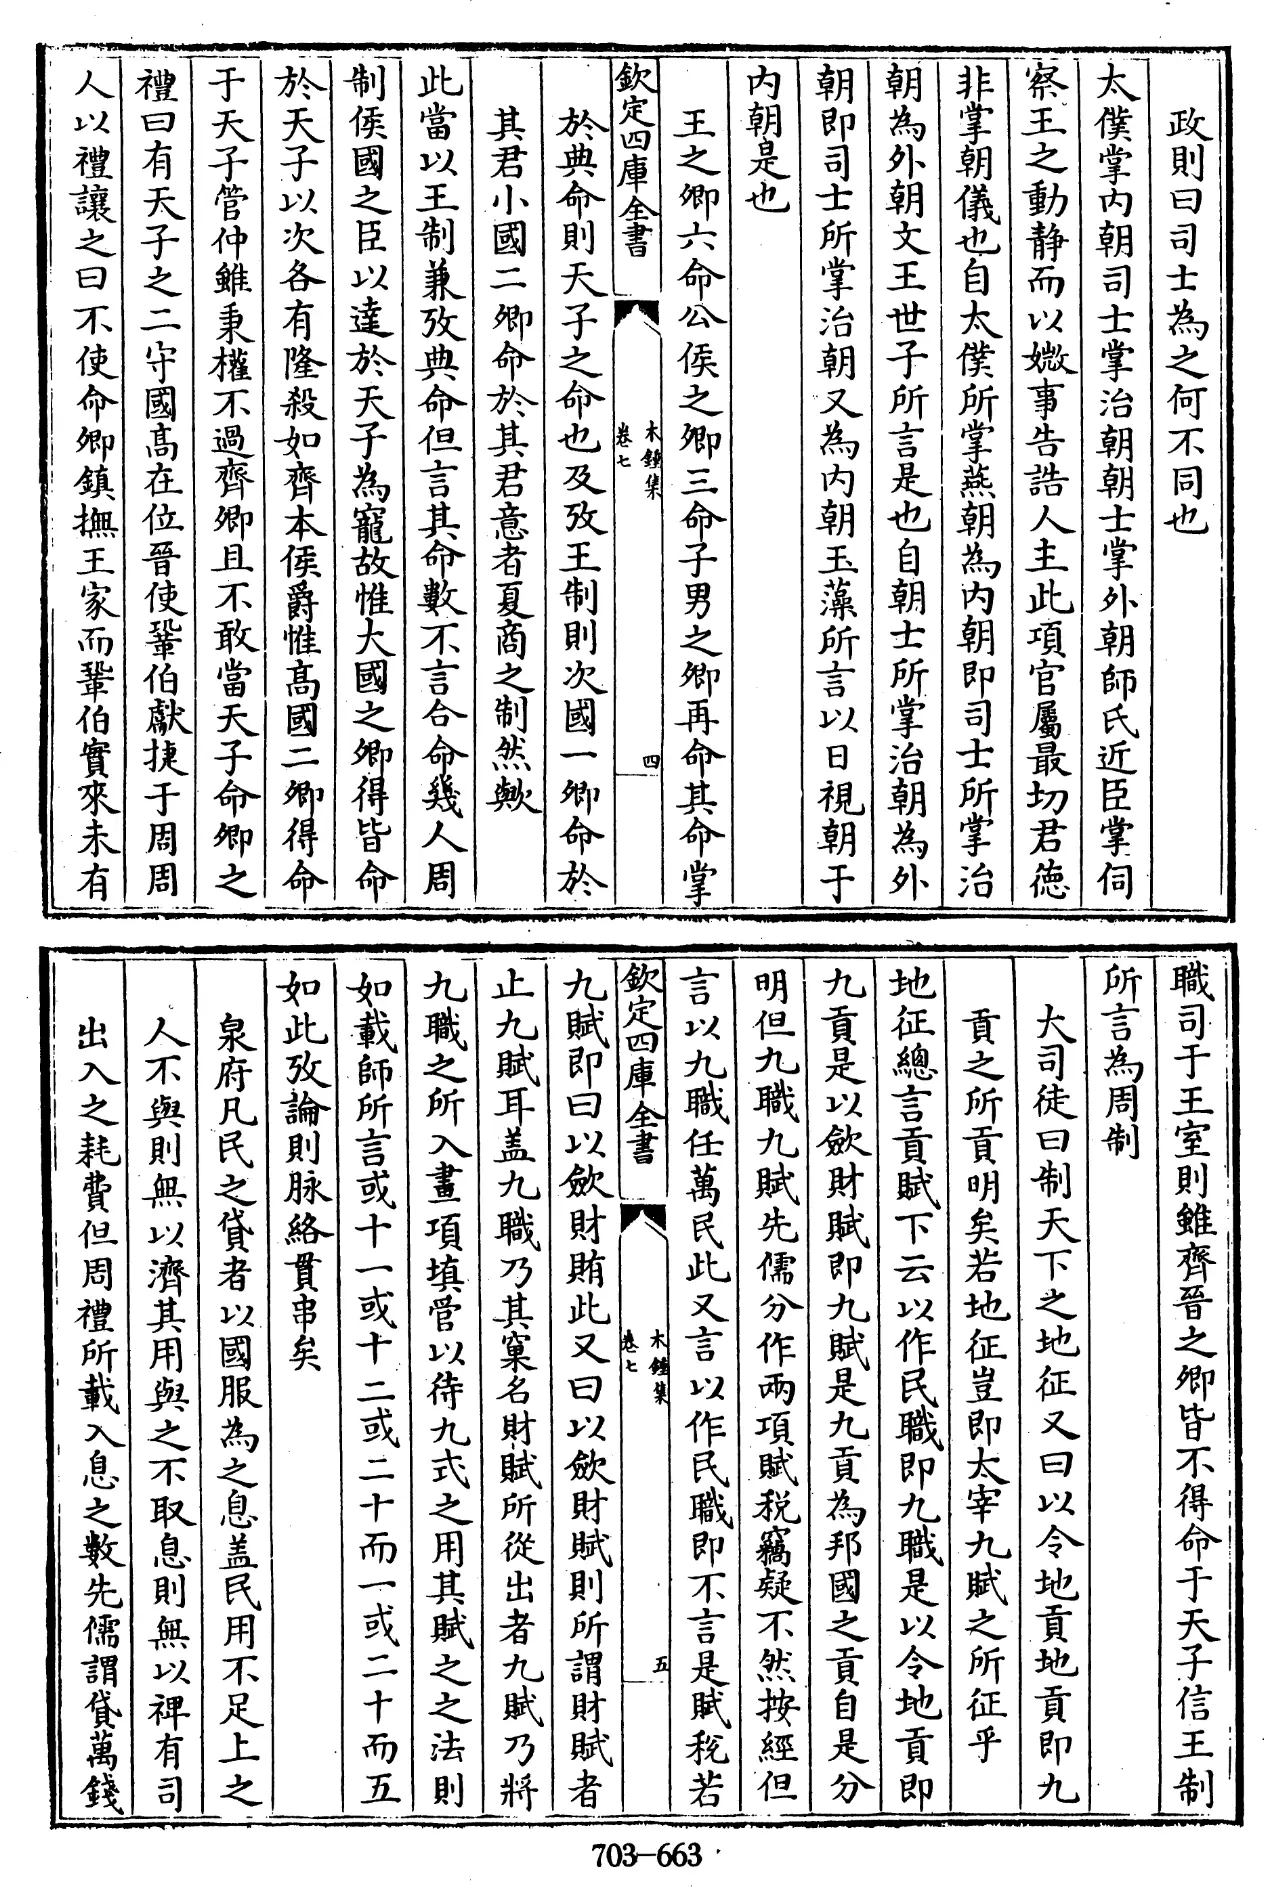 政則曰司士為之何不同也
太僕掌内朝司士掌治朝朝士掌外朝師氏近臣掌伺
察王之動靜而以媺事告誥人主此項官屬最切君德
非掌朝儀也自太僕所掌燕朝為内朝即司士所掌治
朝為外朝文王世子所言是也自朝士所掌治朝為外
朝即司士所掌治朝又為内朝玉藻所言以日視朝于
内朝是也
王之卿六命公侯之卿三命子男之卿再命其命掌
欽定四庫全書
木鍾集
卷七
四
於典命則天子之命也及攷王制則次國一卿命於
其君小國二卿命於其君意者夏商之制然歟
此當以王制兼攷典命但言其命數不言合命幾人周
制侯國之臣以達於天子為寵故惟大國之卿得皆命
於天子以次各有隆殺如齊本侯爵惟髙國二卿得命
于天子管仲雖秉權不過齊卿且不敢當天子命卿之
禮曰有天子之二守國髙在位晉使鞏伯獻捷于周周
人以禮讓之曰不使命卿鎮撫王家而鞏伯實來未有
職司于王室則雖齊晉之卿皆不得命于天子信王制
所言為周制
大司徒曰制天下之地征又曰以令地貢地貢即九
貢之所貢明矣若地征豈即太宰九賦之所征乎
地征總言貢賦下云以作民職即九職是以令地貢即
九貢是以歛財賦即九賦是九貢為邦國之貢自是分
明但九職九賦先儒分作兩項賦税竊疑不然按經但
言以九職任萬民此又言以作民職即不言是賦税若
欽定四庫全書
木鍾集
卷七
五
九賦即曰以歛財賄此又曰以歛財賦則所謂財賦者
止九賦耳盖九職乃其窠名財賦所從出者九賦乃將
九職之所入畫項填管以待九式之用其賦之之法則
如載師所言或十一或十二或二十而一或二十而五
如此攷論則脉絡貫串矣
泉府凡民之貸者以國服為之息盖民用不足上之
人不與則無以濟其用與之不取息則無以裨有司
出入之耗費但周禮所載入息之數先儒謂貸萬錢
703-663